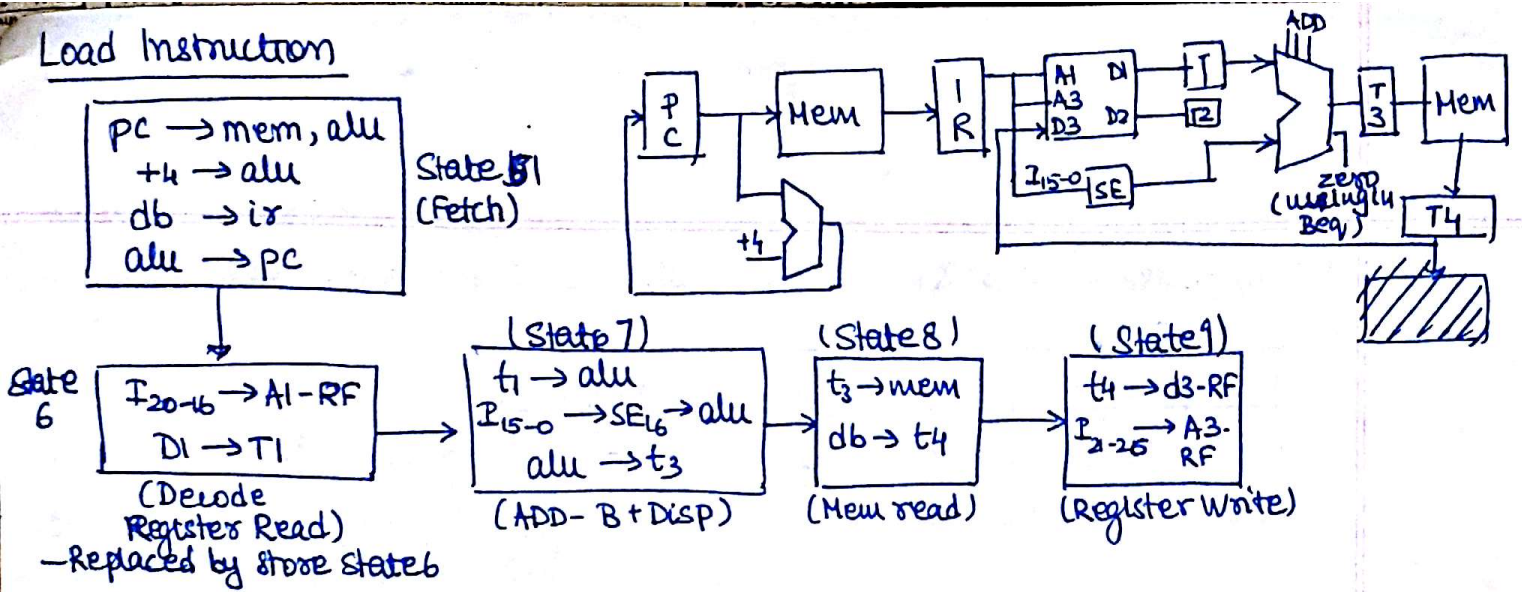 Load Instruction
PC → mem, alu
+4 → alu
db → ir
alu → PC
State 1
(Fetch)
PC
Mem
IR
A1 D1
A3
D3 D2
T2
I15-0 SE
+4
ADD
T3
Mem
zero
Beq)
T4
State
6
I20-16 → A1-RF
D1 → T1
(Decode
Register Read)
-Replaced by store state6
(State 7)
t1 → alu
I15-0 → SE16 → alu
alu → t3
(ADD- B + Disp)
(State 8)
t3 → mem
db → t4
(Mem read)
(State 9)
t4 → d3-RF
I21-25 → A3-
RF
(Register Write)